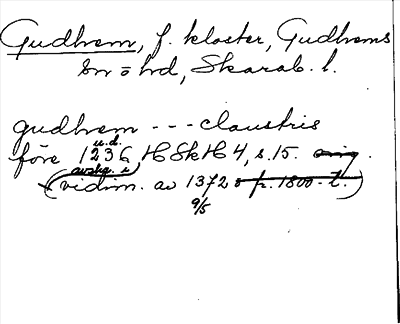 Gudhem, f. kloster, Gudhems
sn o hd, Skarab. l.
gudhem --- claustris
u.d.
före 1236, HSkH 4, s. 15. orig.
avskr. i
(vidim. av 1372 o pr. 1800-t.)
9/5